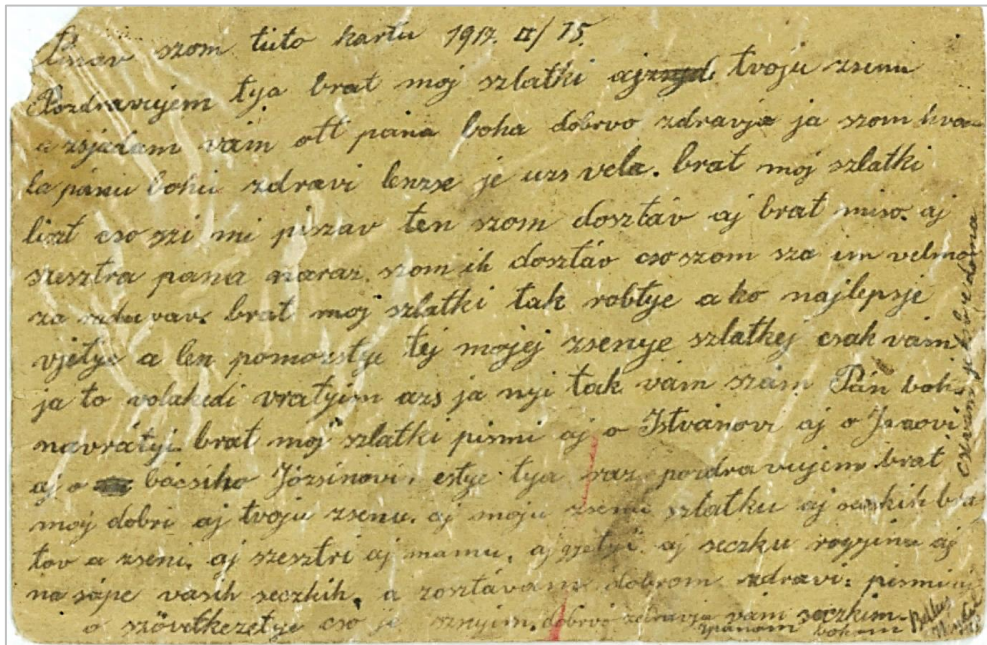 Pisav szom tuto kartu 1917. II/15.
Pozdravujem tya brat moj szlatki aj tvoju zsenu
a zsjadam vam ott pana boha dobrvo zdravja ja szom hva-
la pánu bohu zdravi lenzse je uzs vela. brat moj szlatki
liszt cso szi mi piszav ten szom dosztáv aj brat miso. aj
szesztra pana naraz szom ih dosztáv cso szom sza im velmo
za raduvav. brat moj szlatki tak robtye ako najlepsje
vjetye a len pomozstye tej mojej zsenye szlatkej csak vám
ja to volakedi vratyim azs ja nyi tak vam szám Pán boh
navrátyi. brat moj szlatki pismi aj o Istvánovi aj o
aj o bácsiho Józsinovi. estye tya raz pozdravujem brat
moj dobri aj tvoju zsenu. aj moju zsenu szlatku aj
tov a zseni. aj szesztri aj mamu. aj gyetyi aj seczku rogyinu aj
na sápe vasih seczkih. a zosztávam dobrom zdravi:
o szövetkezetye cso je sznyim. dobrvo zdravja vám seczkim.
spánom bohom